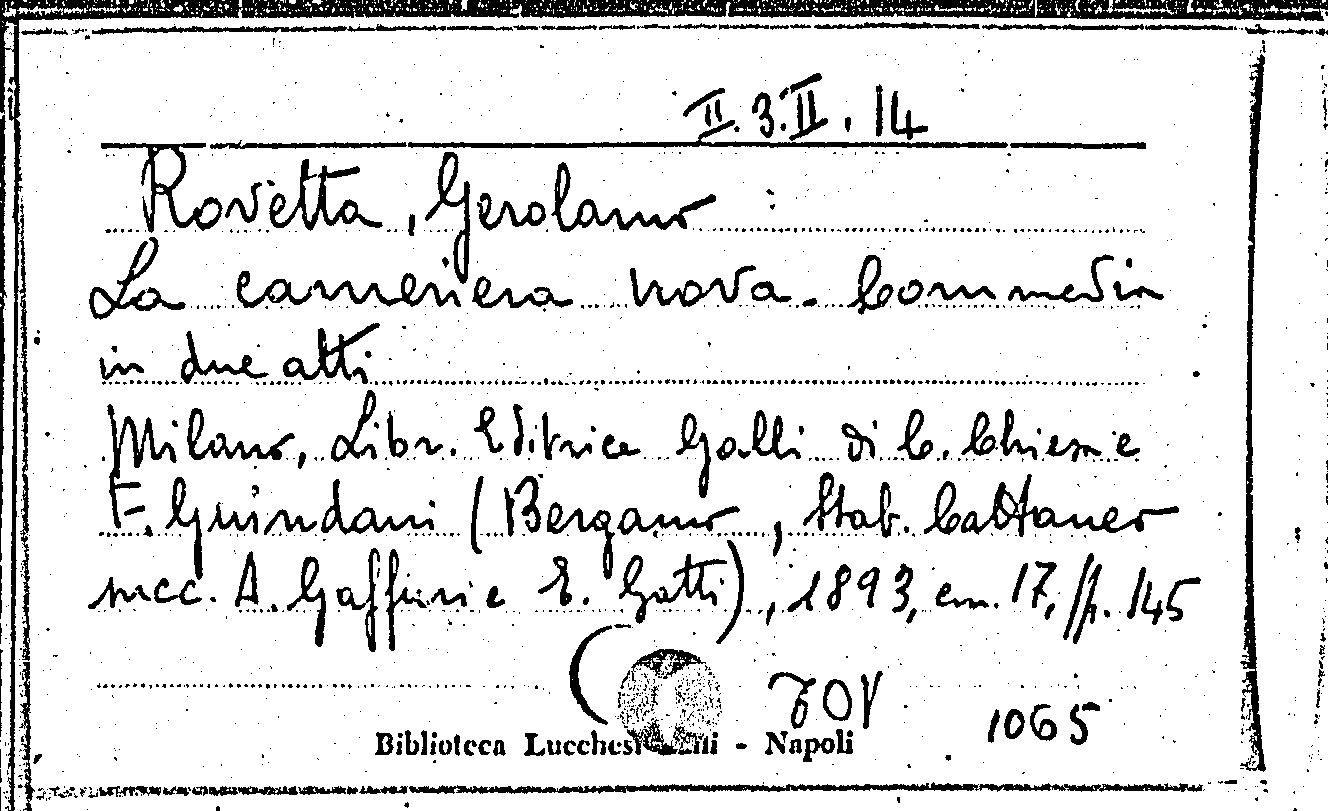 II.3.II.14
Rovetta, Gerolamo
La cameriera nova. Commedia
in due atti
Milano, Libr. Editrice Galli di C. Chiesa e
F. Guindani (Bergamo, Stab. Cattaneo
succ. A. Gaffuri e E. Gatti), 1893, cm. 17, pp. 145
1065
Biblioteca Lucchesi - Napoli